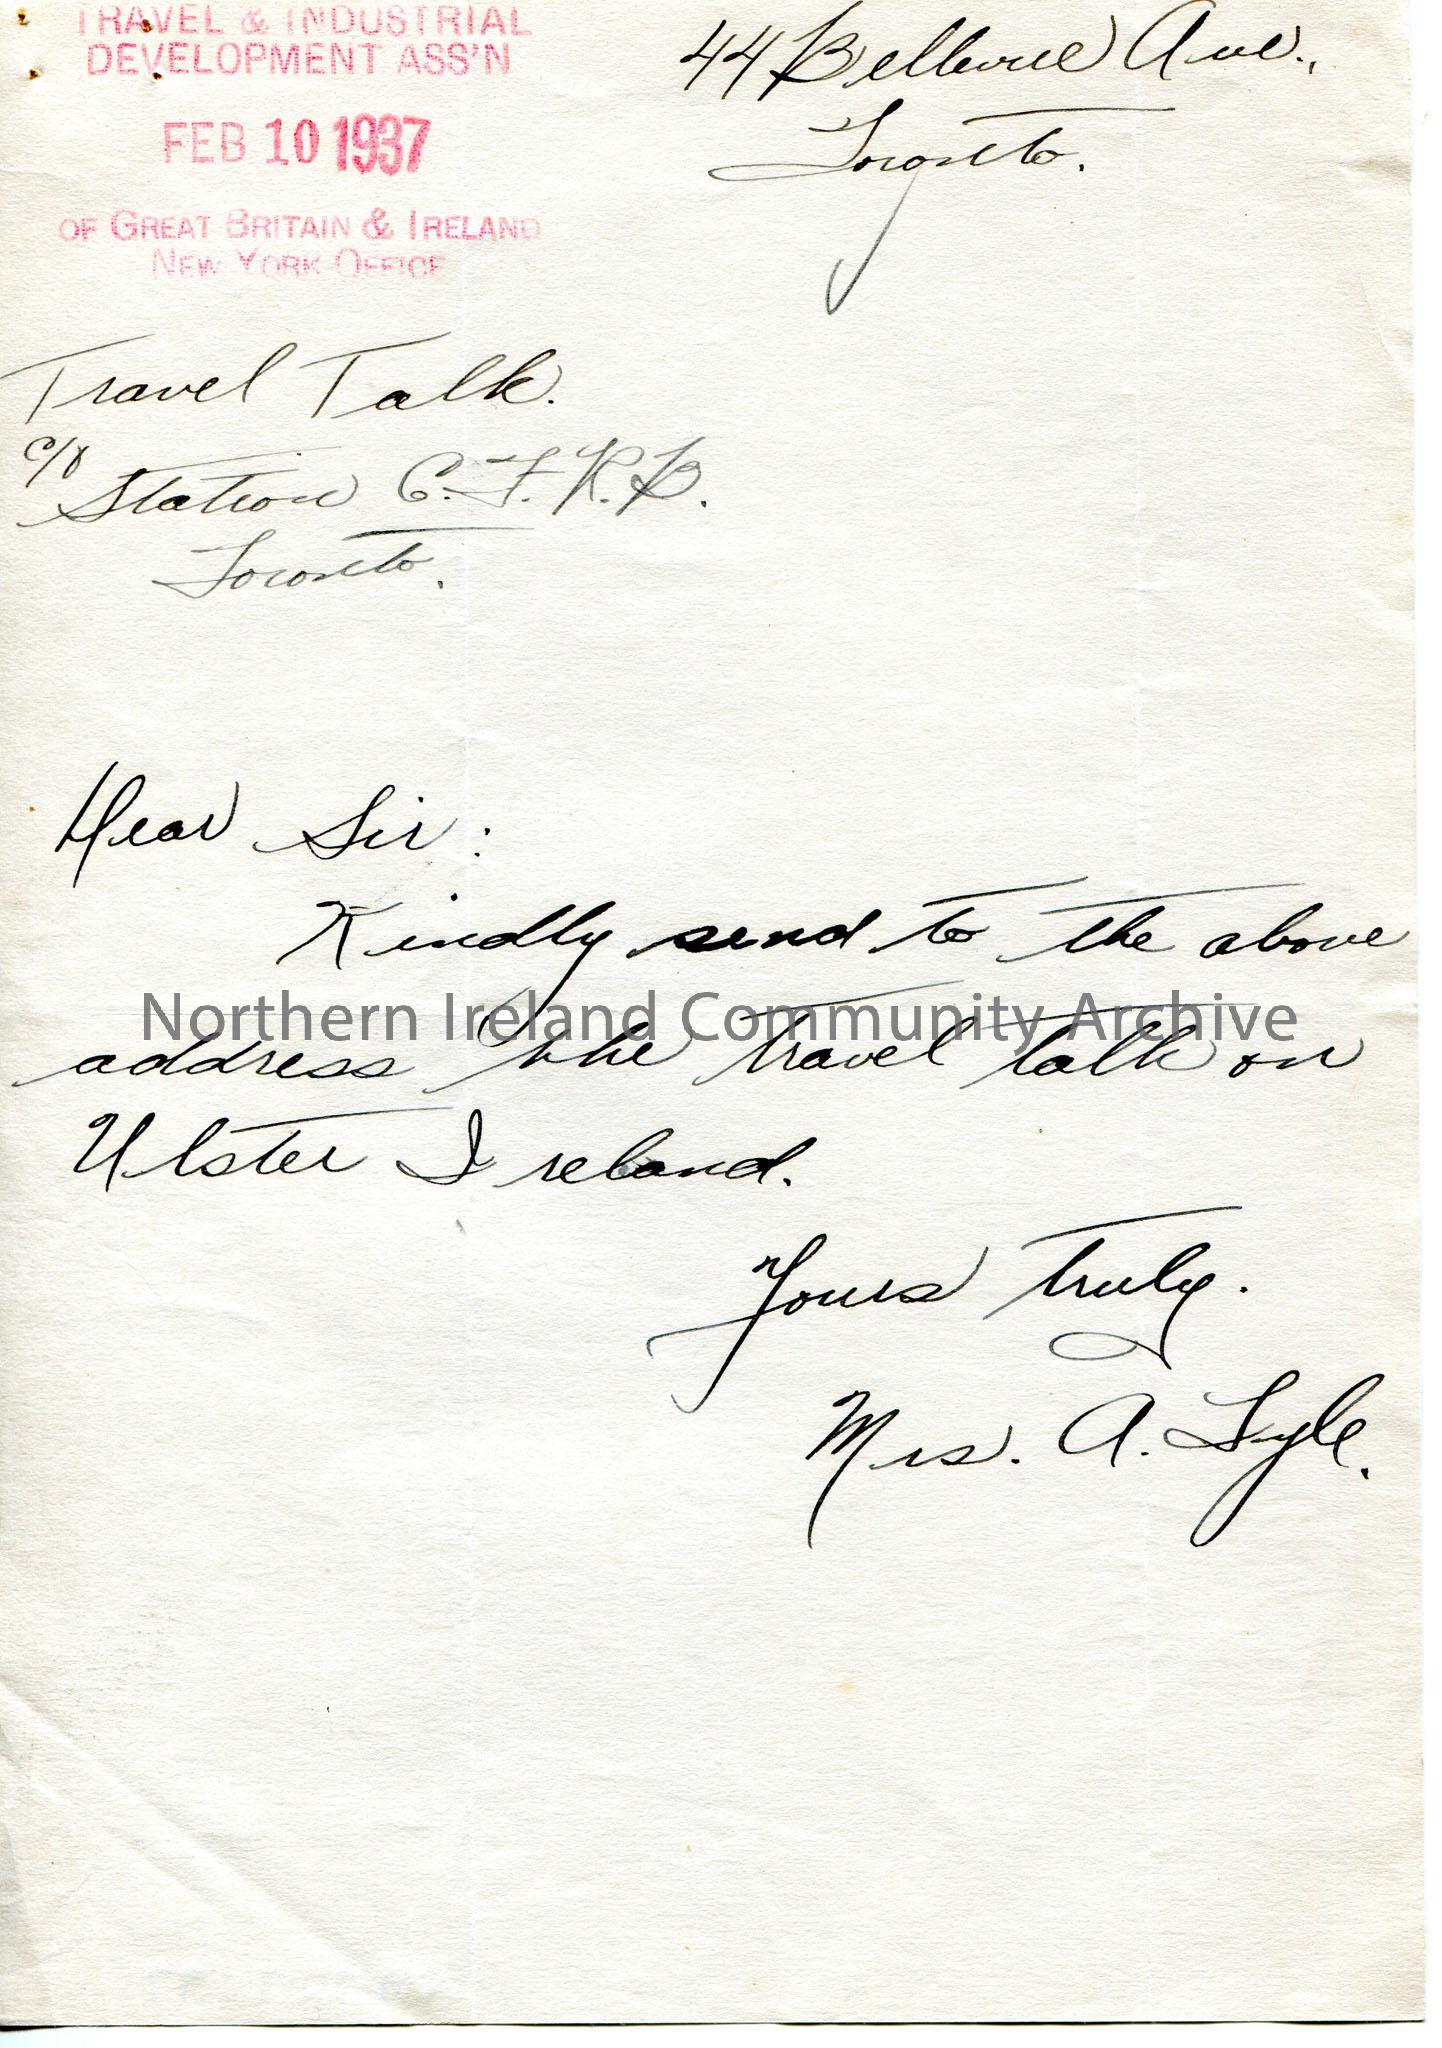 TRAVEL & INDUSTRIAL
DEVELOPMENT ASS'N
FEB 10 1937
OF GREAT BRITAIN & IRELAND
NEW YORK OFFICE
44 Bellevue Ave.,
Toronto.
Travel Talk.
c/o
Station C.F.R.B.
Toronto.
Dear Sir:
Kindly send to the above
Northern Ireland Community Archive
address the travel talk on
Ulster Ireland.
Yours truly.
Mrs. A. Lyle.